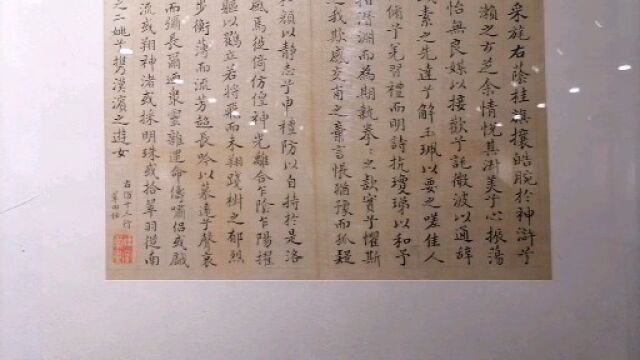 采旄右蔭桂旗攘皓腕於神滸兮
瀨之方芝余情悅其淑美兮心振蕩
怡無良媒以接歡兮託微波以通辭
素之先達兮解玉珮以要之嗟佳人
脩兮羌習禮而明詩抗瓊珶以和予
指潛淵而為期執拳拳之款實兮懼斯
之我欺感交甫之棄言悵猶豫而狐疑
和顏以靜志兮申禮防以自持於是洛
感焉徙倚仿偟神光離合乍陰乍陽擢
軀以鶴立若將飛而未翔踐樹之郁烈
步衡薄而流芳超長吟以慕遠兮聲哀
而彌長爾迺眾靈雜遝命儔嘯侶或戲
流或翔神渚或採明珠或拾翠羽從南
之二姚兮攜漢濱之遊女
右洛十三行